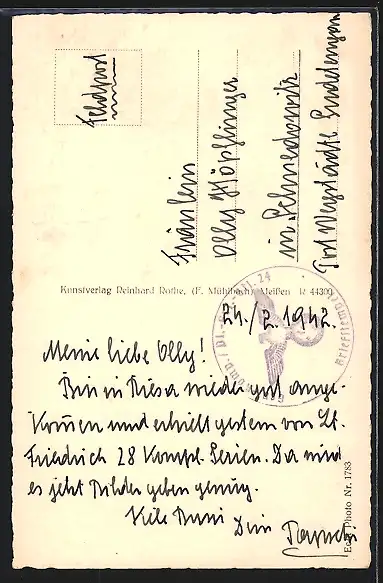 Feldpost
Fräulein
Olly Höpflinger
in Schnedowitz
Post Wegstädtl Sudetengau
Kunstverlag Reinhard Rothe, (F. Mühlbach) Meißen R 44300
24./2. 1942.
Meine liebe Olly!
Bin in Riesa wieder gut ange-
kommen und erhielt gestern von Lt.
Friedrich 28 Kompl. Serien. Da wird
es jetzt Bilder geben genug.
Viele Bussi
Dein
Echt Photo Nr. 1783